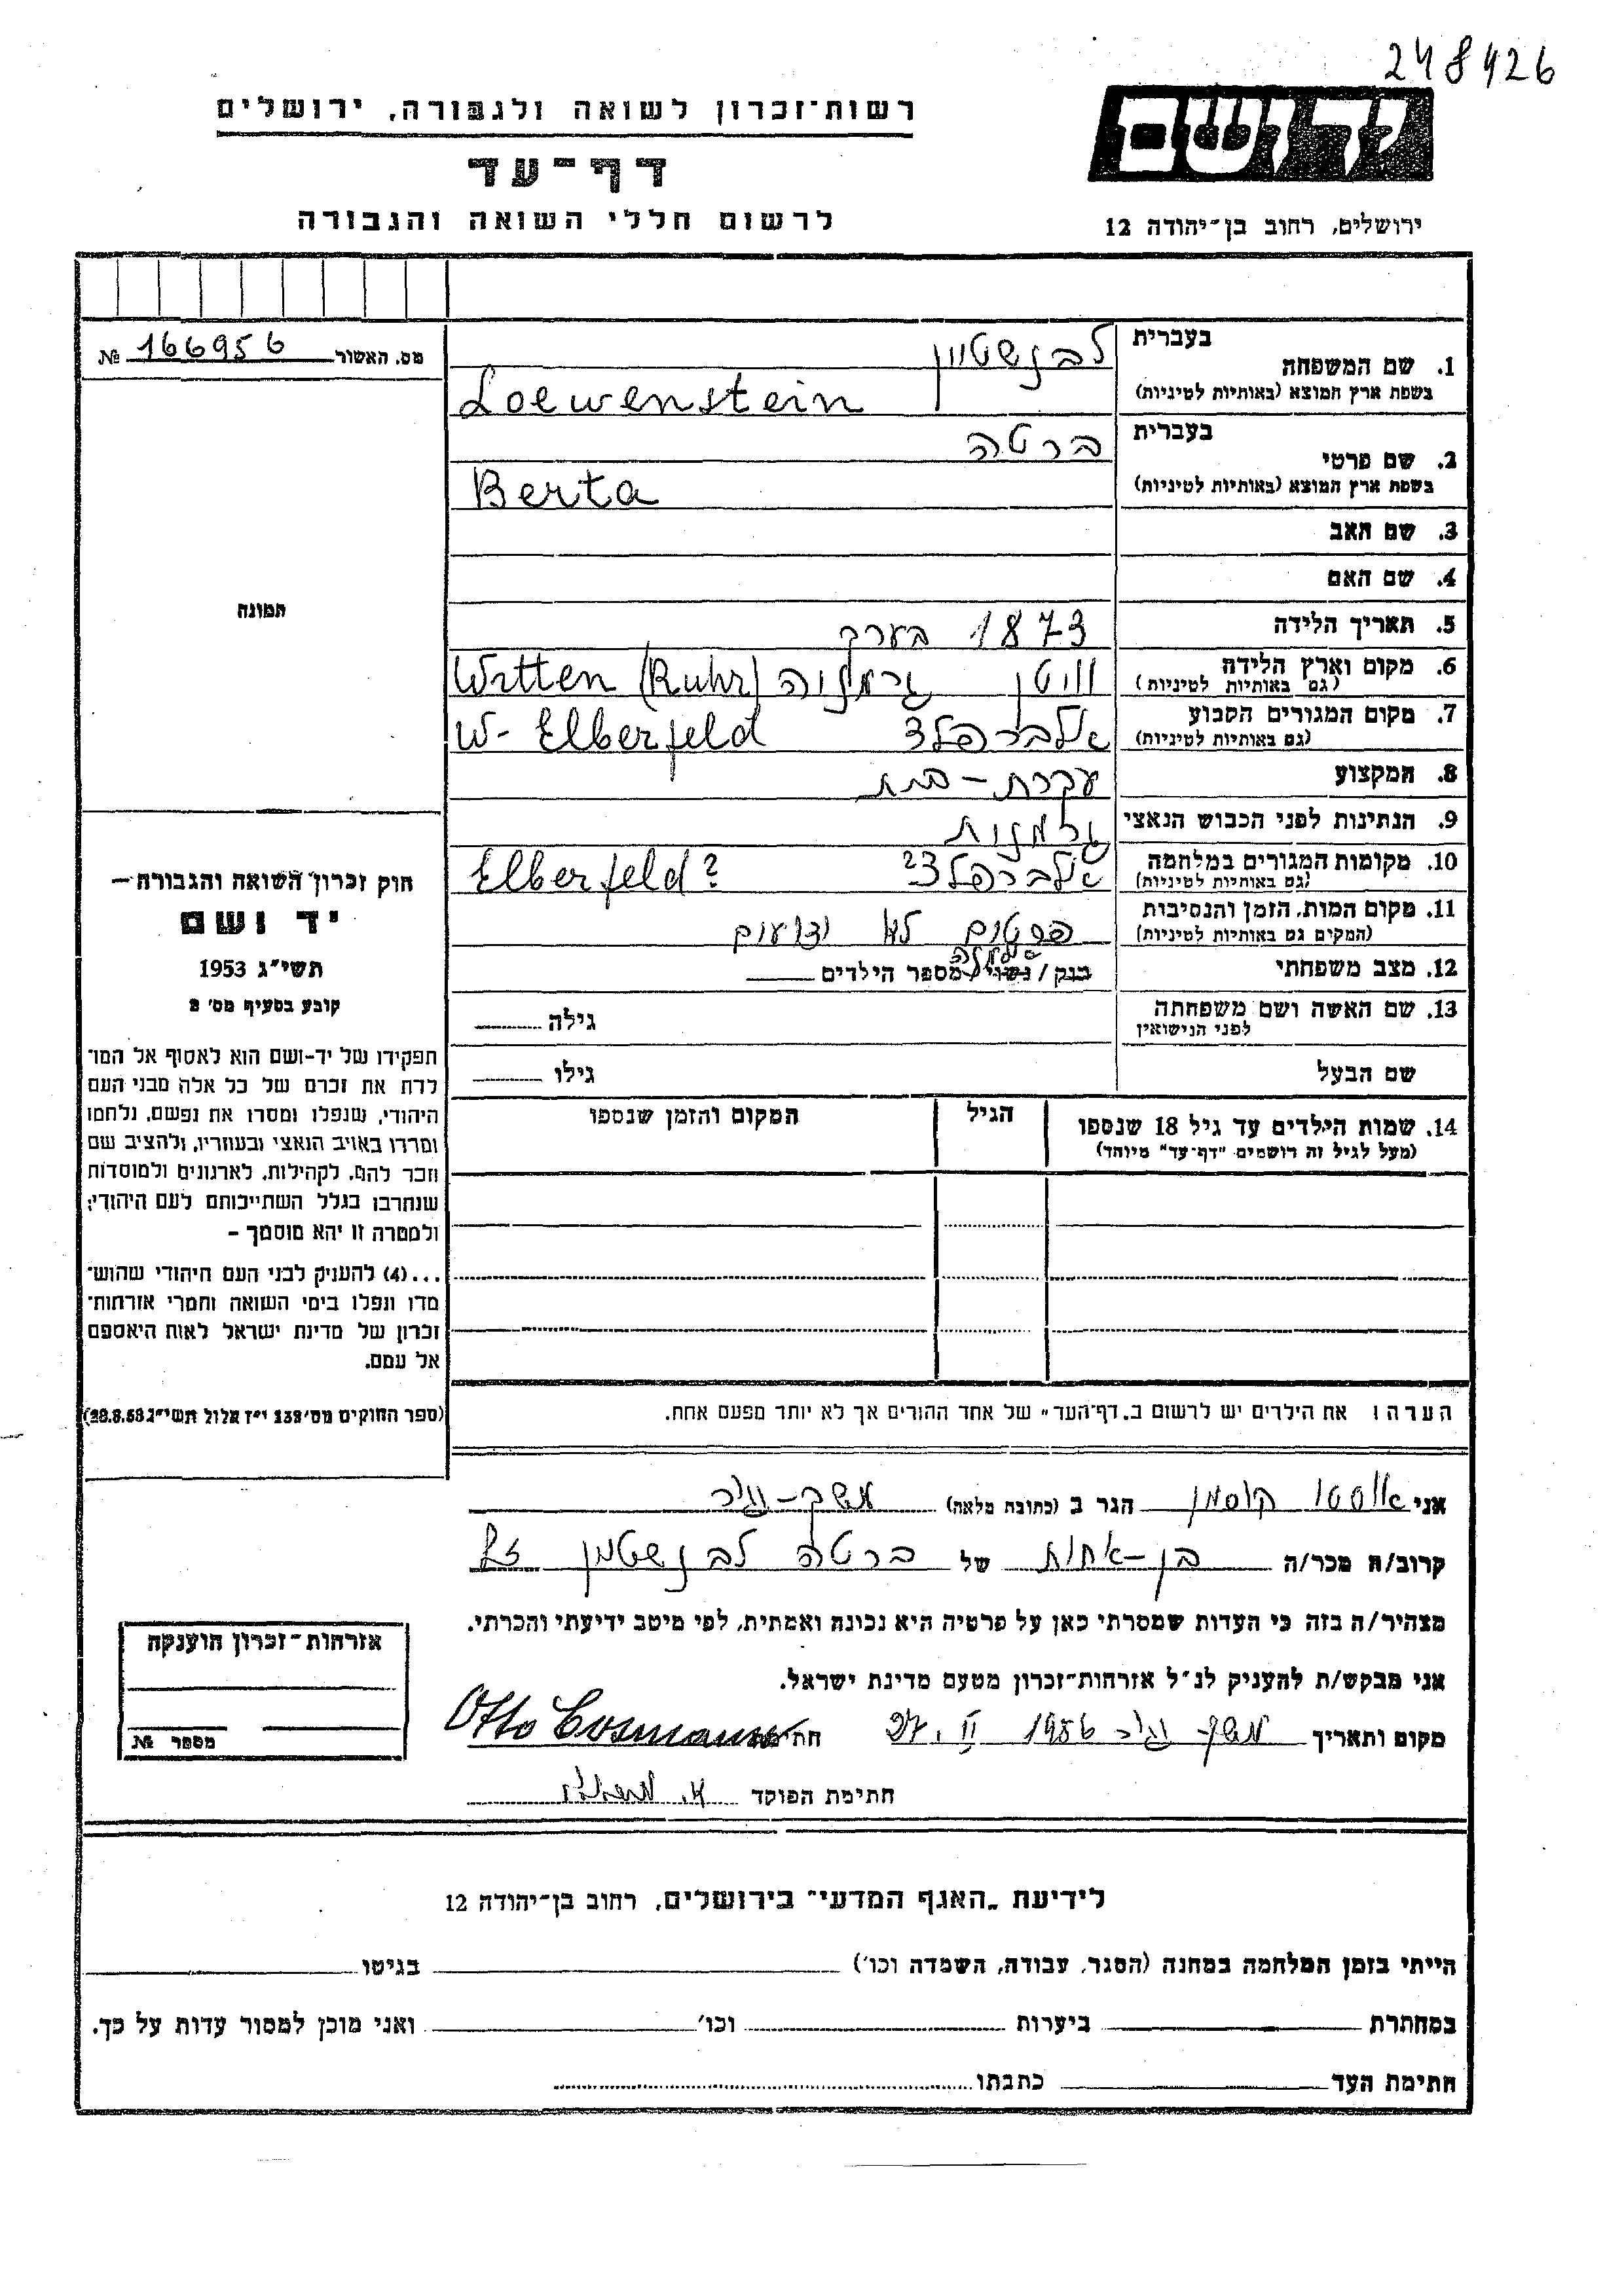 248426
יד ושם
רשות־זכרון לשואה ולגבורה, ירושלים
דף־עד
לרשום חללי השואה והגבורה
ירושלים, רחוב בן־יהודה 12
מס. האשור 166956 №
תמונה
חוק זכרון השואה והגבורה —
יד ושם
תשי״ג 1953
קובע בסעיף מס׳ 2
תפקידו של יד-ושם הוא לאסוף אל המו־
לדת את זכרם של כל אלה מבני העם
היהודי, שנפלו ומסרו את נפשם, נלחמו
ומרדו באויב הנאצי ובעוזריו, ולהציב שם
וזכר להם, לקהילות, לארגונים ולמוסדות
שנחרבו בגלל השתייכותם לעם היהודי;
ולמטרה זו יהא מוסמך —
...(4) להעניק לבני העם היהודי שהוש־
מדו ונפלו בימי השואה והמרי אזרחות־
זכרון של מדינת ישראל לאות היאספם
אל עמם.
(ספר החוקים מס׳ 132 י״ז אלול תשי״ג 28.8.53)
בעברית לבנשטיין
1. שם המשפחה
בשפת ארץ המוצא (באותיות לטיניות) Loewenstein
בעברית ברטה
2. שם פרטי
בשפת ארץ המוצא (באותיות לטיניות) Berta
3. שם האב
4. שם האם
5. תאריך הלידה 1873 בערך
6. מקום וארץ הלידה וויטן גרמניה Witten (Ruhr)
(גם באותיות לטיניות)
7. מקום המגורים הקבוע אלברפלד W- Elberfeld
(גם באותיות לטיניות)
8. המקצוע עקרת-בית
9. הנתינות לפני הכבוש הנאצי גרמנית
10. מקומות המגורים במלחמה אלברפלד? Elberfeld?
(גם באותיות לטיניות)
11. מקום המות, הזמן והנסיבות פרטים לא ידועים
(המקום גם באותיות לטיניות)
12. מצב משפחתי רווק / נשוי מספר הילדים
13. שם האשה ושם משפחתה גילה
לפני הנישואין
שם הבעל גילו
14. שמות הילדים עד גיל 18 שנספו הגיל המקום והזמן שנספו
(מעל לגיל זה רושמים "דף־עד" מיוחד)
הערה: את הילדים יש לרשום ב„דף־העד" של אחד ההורים אך לא יותר מפעם אחת.
אני אוטו קוסמן הגר ב (כתובת מלאה) משק-יגור
קרוב/ה מכר/ה בן-אחות של ברטה לבנשטיין ז"ל
מצהיר/ה בזה כי העדות שמסרתי כאן על פרטיה היא נכונה ואמתית, לפי מיטב ידיעתי והכרתי.
אני מבקש/ת להעניק לנ״ל אזרחות־זכרון מטעם מדינת ישראל.
מקום ותאריך משק-יגור 27. II 1956 חתימה Otto Cosmann
חתימת הפוקד
אזרחות־זכרון הוענקה
מספר №
לידיעת „האגף המדעי" בירושלים, רחוב בן־יהודה 12
הייתי בזמן המלחמה במחנה (הסגר, עבודה, השמדה וכו׳) בגיטו
במחתרת ביערות וכו׳ ואני מוכן למסור עדות על כך.
חתימת העד כתבתו